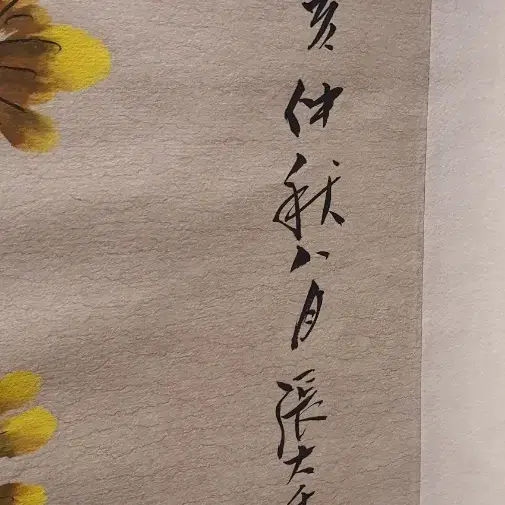 亥仲秋八月張大